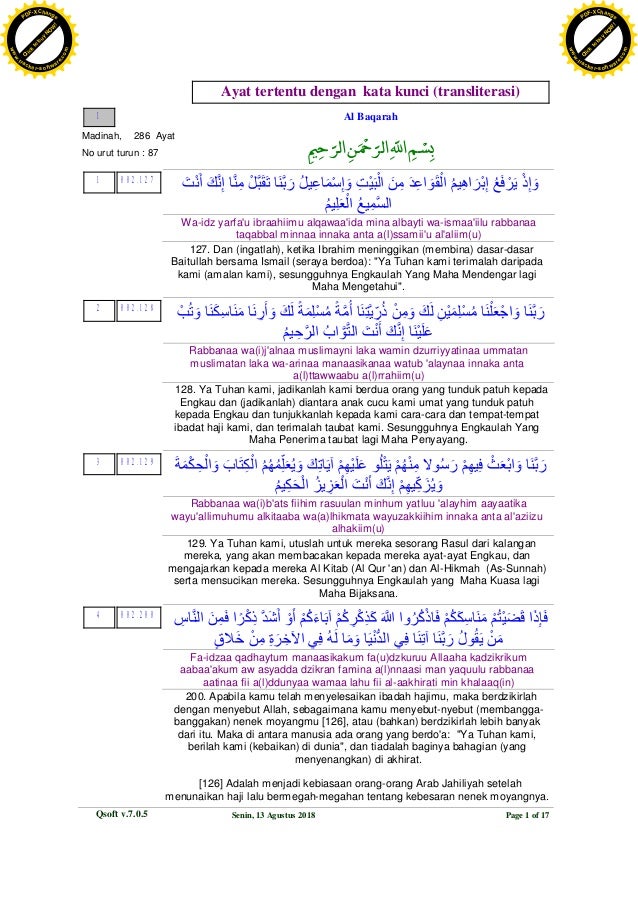 PDF-XChange
Click to buy NOW!
www.tracker-software.com
PDF-XChange
Click to buy NOW!
www.tracker-software.com
Ayat tertentu dengan kata kunci (transliterasi)
1
Al Baqarah
Madinah, 286 Ayat
No urut turun : 87
بِسْمِ اللهِ الرَّحْمَنِ الرَّحِيمِ
1 002.127 وَإِذْ يَرْفَعُ إِبْرَاهِيمُ الْقَوَاعِدَ مِنَ الْبَيْتِ وَإِسْمَاعِيلُ رَبَّنَا تَقَبَّلْ مِنَّا إِنَّكَ أَنْتَ
السَّمِيعُ الْعَلِيمُ
Wa-idz yarfa'u ibraahiimu alqawaa'ida mina albayti wa-ismaa'iilu rabbanaa
taqabbal minnaa innaka anta a(l)ssamii'u al'aliim(u)
127. Dan (ingatlah), ketika Ibrahim meninggikan (membina) dasar-dasar
Baitullah bersama Ismail (seraya berdoa): "Ya Tuhan kami terimalah daripada
kami (amalan kami), sesungguhnya Engkaulah Yang Maha Mendengar lagi
Maha Mengetahui".
2 002.128 رَبَّنَا وَاجْعَلْنَا مُسْلِمَيْنِ لَكَ وَمِنْ ذُرِّيَّتِنَا أُمَّةً مُسْلِمَةً لَكَ وَأَرِنَا مَنَاسِكَنَا وَتُبْ
عَلَيْنَا إِنَّكَ أَنْتَ التَّوَّابُ الرَّحِيمُ
Rabbanaa wa(i)j'alnaa muslimayni laka wamin dzurriyyatinaa ummatan
muslimatan laka wa-arinaa manaasikanaa watub 'alaynaa innaka anta
a(l)ttawwaabu a(l)rrahiim(u)
128. Ya Tuhan kami, jadikanlah kami berdua orang yang tunduk patuh kepada
Engkau dan (jadikanlah) diantara anak cucu kami umat yang tunduk patuh
kepada Engkau dan tunjukkanlah kepada kami cara-cara dan tempat-tempat
ibadat haji kami, dan terimalah taubat kami. Sesungguhnya Engkaulah Yang
Maha Penerima taubat lagi Maha Penyayang.
3 002.129 رَبَّنَا وَابْعَثْ فِيهِمْ رَسُولا مِنْهُمْ يَتْلُو عَلَيْهِمْ آيَاتِكَ وَيُعَلِّمُهُمُ الْكِتَابَ وَالْحِكْمَةَ
وَيُزَكِّيهِمْ إِنَّكَ أَنْتَ الْعَزِيزُ الْحَكِيمُ
Rabbanaa wa(i)b'ats fiihim rasuulan minhum yatluu 'alayhim aayaatika
wayu'allimuhumu alkitaaba wa(a)lhikmata wayuzakkiihim innaka anta al'aziizu
alhakiim(u)
129. Ya Tuhan kami, utuslah untuk mereka sesorang Rasul dari kalangan
mereka, yang akan membacakan kepada mereka ayat-ayat Engkau, dan
mengajarkan kepada mereka Al Kitab (Al Qur 'an) dan Al-Hikmah (As-Sunnah)
serta mensucikan mereka. Sesungguhnya Engkaulah yang Maha Kuasa lagi
Maha Bijaksana.
4 002.200 فَإِذَا قَضَيْتُمْ مَنَاسِكَكُمْ فَاذْكُرُوا اللهَ كَذِكْرِكُمْ آبَاءَكُمْ أَوْ أَشَدَّ ذِكْرًا فَمِنَ النَّاسِ
مَنْ يَقُولُ رَبَّنَا آتِنَا فِي الدُّنْيَا وَمَا لَهُ فِي الآخِرَةِ مِنْ خَلاقٍ
Fa-idzaa qadhaytum manaasikakum fa(u)dzkuruu Allaaha kadzikrikum
aabaa'akum aw asyadda dzikran famina a(l)nnaasi man yaquulu rabbanaa
aatinaa fii a(l)ddunyaa wamaa lahu fii al-aakhirati min khalaaq(in)
200. Apabila kamu telah menyelesaikan ibadah hajimu, maka berdzikirlah
dengan menyebut Allah, sebagaimana kamu menyebut-nyebut (membangga-
banggakan) nenek moyangmu [126], atau (bahkan) berdzikirlah lebih banyak
dari itu. Maka di antara manusia ada orang yang berdo'a: "Ya Tuhan kami,
berilah kami (kebaikan) di dunia", dan tiadalah baginya bahagian (yang
menyenangkan) di akhirat.
[126] Adalah menjadi kebiasaan orang-orang Arab Jahiliyah setelah
menunaikan haji lalu bermegah-megahan tentang kebesaran nenek moyangnya.
Qsoft v.7.0.5 Senin, 13 Agustus 2018 Page 1 of 17